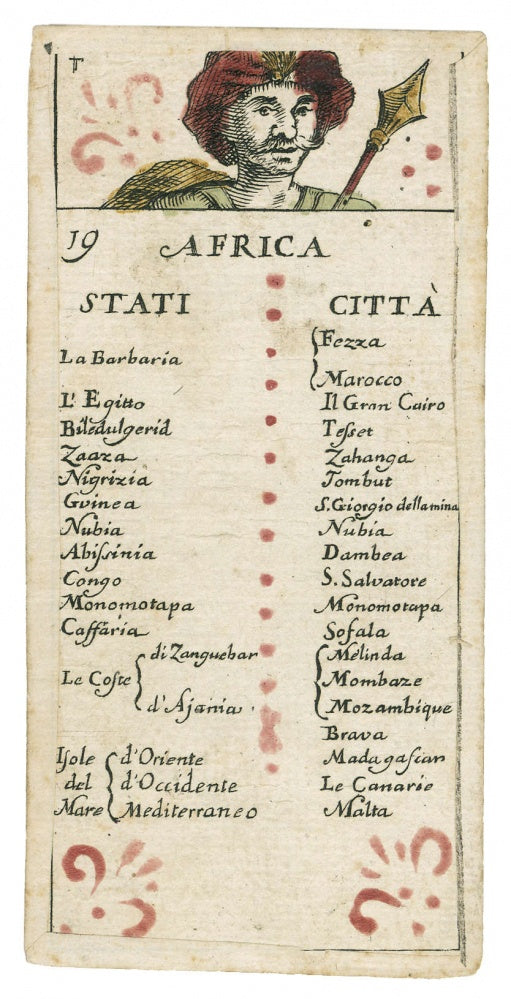 T
19 AFRICA
STATI CITTÀ
La Barbaria Fezza
Marocco
L'Egitto Il Gran Cairo
Biledulgerid Tesset
Zaaza Zahanga
Nigrizia Tombut
Guinea S. Giorgio della mina
Nubia Nubia
Abiſsinia Dambea
Congo S. Salvatore
Monomotapa Monomotapa
Caffaria Sofala
Le Coste di Zanguebar Melinda
Mombaze
d'Ajania Mozambique
Brava
Iſole d'Oriente Madagaſcar
del d'Occidente Le Canarie
Mare Mediterraneo Malta